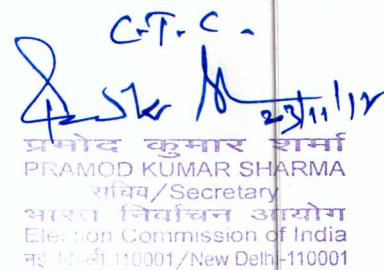 C.T.C.
23/11/12
प्रमोद कुमार शर्मा
PRAMOD KUMAR SHARMA
सचिव/Secretary
भारत निर्वाचन आयोग
Election Commission of India
नई दिल्ली 110001/New Delhi-110001